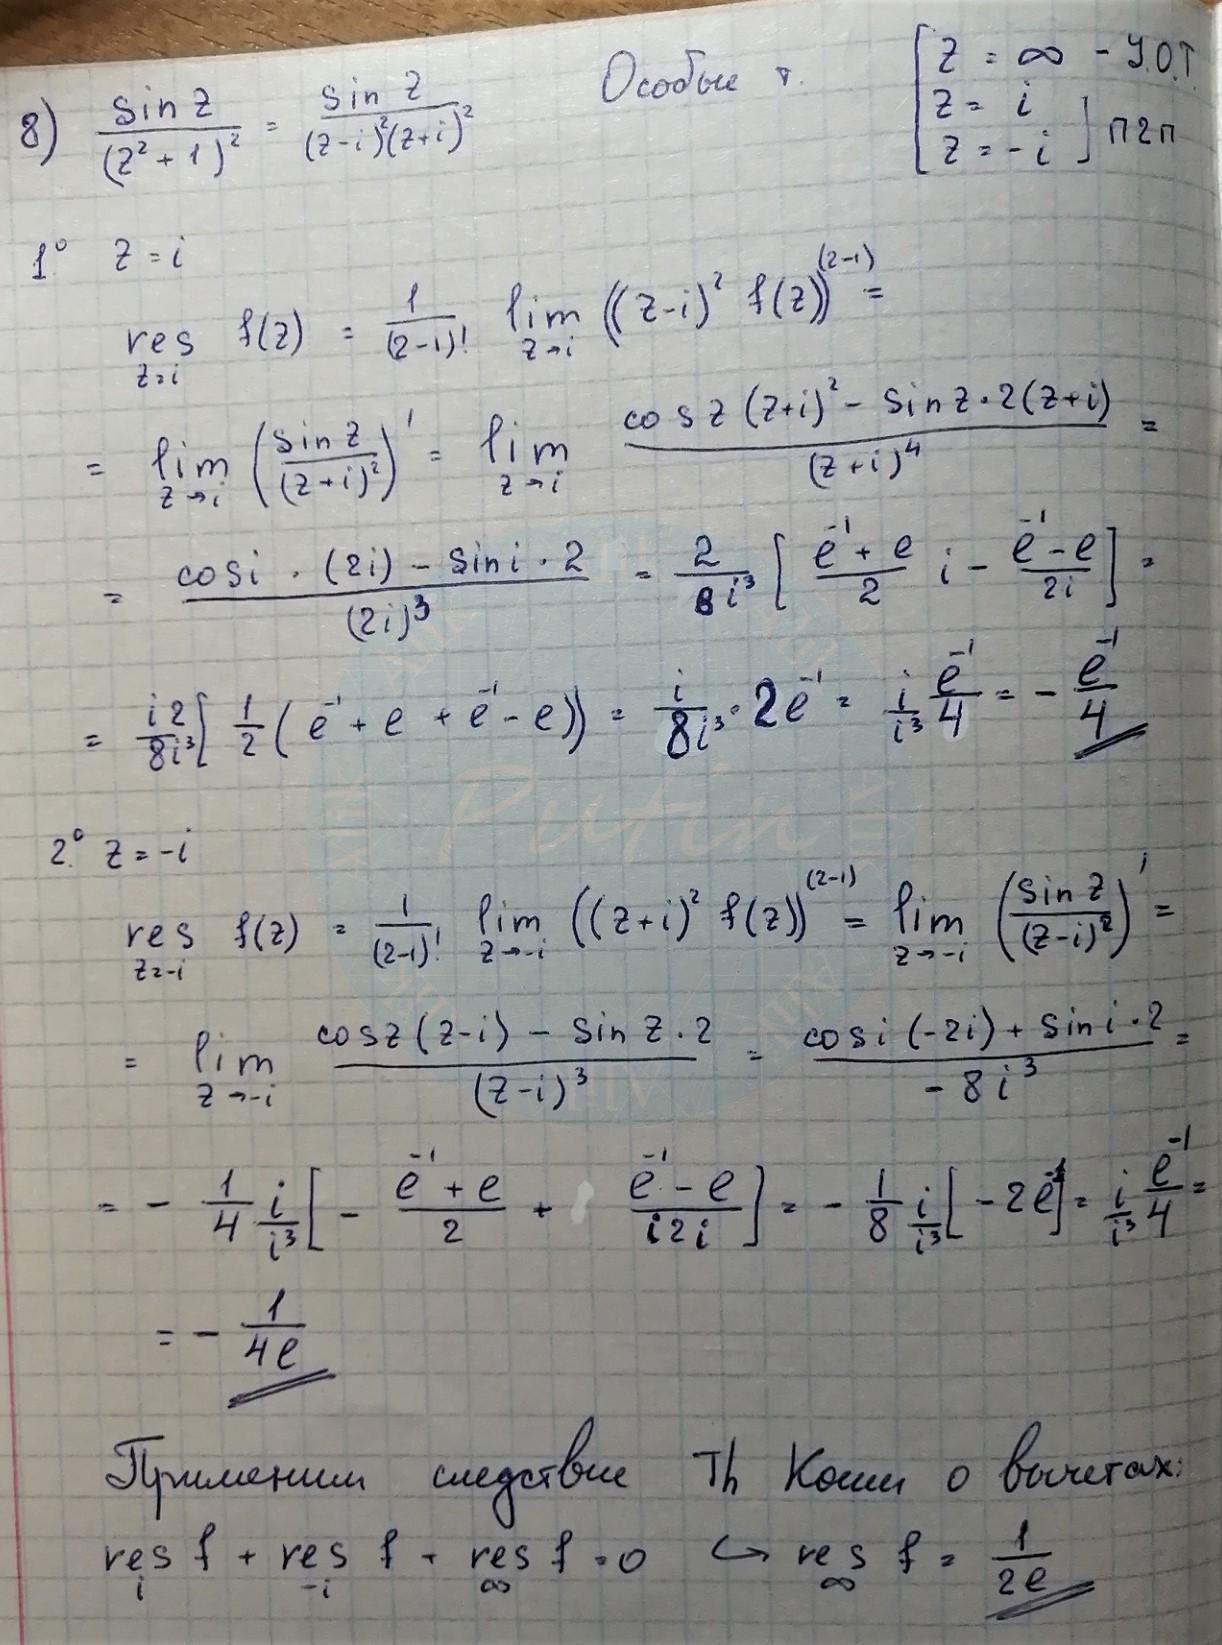 8) sin z / (z² + 1)² = sin z / (z-i)²(z+i)² Особые т. [ z = ∞ - У.О.Т
z = i
z = -i ] П2П
1.° z = i
res_{z=i} f(z) = 1/(2-1)! lim_{z→i} ((z-i)² f(z))^{(2-1)} =
= lim_{z→i} (sin z / (z+i)²)' = lim_{z→i} cos z (z+i)² - sin z · 2(z+i) / (z+i)⁴ =
= cos i · (2i) - sin i · 2 / (2i)³ = 2/8i³ [ e⁻¹ + e / 2 i - e⁻¹ - e / 2i ] =
= i2/8i³ [ 1/2 ( e⁻¹ + e + e⁻¹ - e)) = i/8i³ · 2e⁻¹ = i/i³ e⁻¹/4 = - e⁻¹/4
Putin
2.° z = -i
res_{z=-i} f(z) = 1/(2-1)! lim_{z→-i} ((z+i)² f(z))^{(2-1)} = lim_{z→-i} (sin z / (z-i)²)' =
= lim_{z→-i} cos z (z-i) - sin z · 2 / (z-i)³ = cos i (-2i) + sin i · 2 / -8i³ =
= - 1/4 i/i³ [ - e⁻¹ + e / 2 + e⁻¹ - e / i2i ] = - 1/8 i/i³ [ -2e⁻¹] = i/i³ e⁻¹/4 =
= - 1/4e
Применим следствие Th Коши о вычетах:
res_i f + res_{-i} f + res_∞ f = 0 ↪ res_∞ f = 1/2e